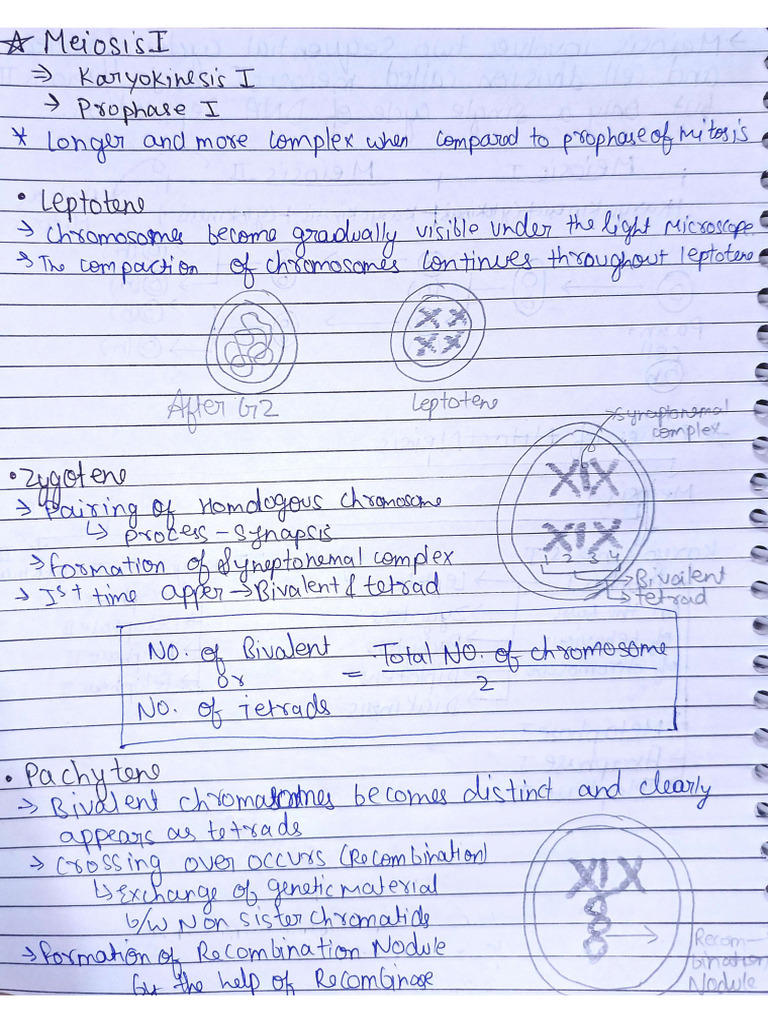 ☆ Meiosis I
⇒ Karyokinesis I
→ Prophase I
* Longer and more complex when compared to prophase of mitosis
• Leptotene
→ Chromosomes become gradually visible under the light Microscope.
→ The compaction of chromosomes continues throughout leptotene
After G2
Leptotene
→ Synaptonemal complex
• Zygotene
→ Pairing of Homologous chromosome
↳ process - synapsis
→ formation of Syneptonemal complex
→ Ist time apper → Bivalent & tetrad
1 2 3 4
→ Bivalent
→ tetrad
No. of Bivalent or No. of Tetrads = Total No. of chromosome / 2
• Pachytene
→ Bivalent chromasomes becomes distinct and clearly
appears as tetrads
→ Crossing over occurs (Recombination)
↳ Exchange of genetic material
b/w Non sister chromatids
→ formation of Recombination Nodule
by the help of Recombinase
Recom-
bination
Nodule